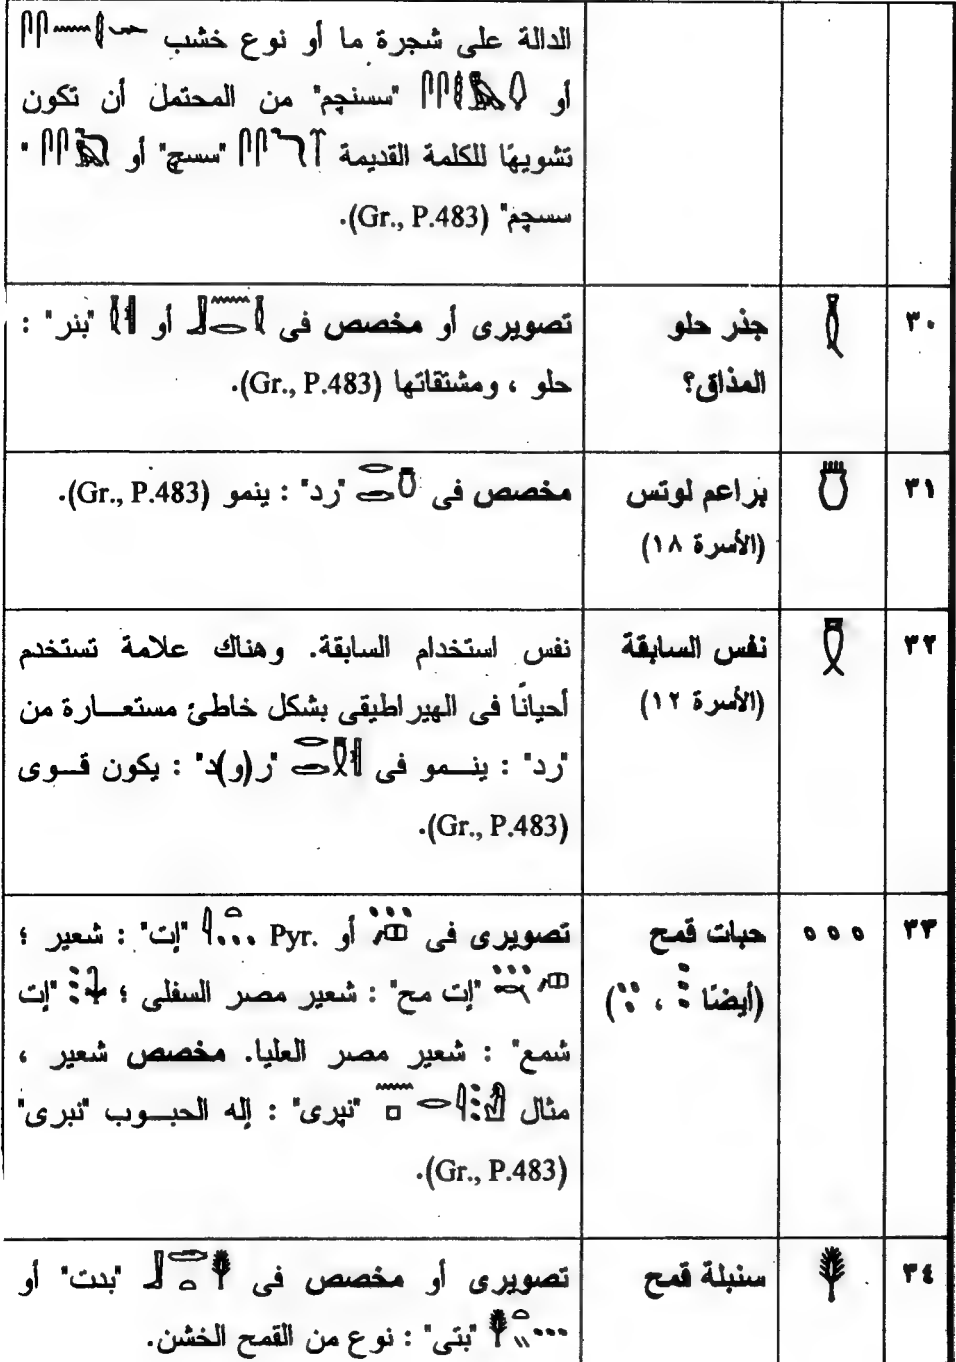 الدالة على شجرة ما أو نوع خشب
أو "سسنچم" من المحتمل أن تكون
تشويهًا للكلمة القديمة "سسچ" أو "
سسچم" (Gr., P.483).
٣٠ جذر حلو تصويرى أو مخصص فى أو "بنر" :
المذاق؟ حلو ، ومشتقاتها (Gr., P.483).
٣١ براعم لوتس مخصص فى "رد" : ينمو (Gr., P.483).
(الأسرة ١٨)
٣٢ نفس السابقة نفس استخدام السابقة. وهناك علامة تستخدم
(الأسرة ١٢) أحيانًا فى الهيراطيقى بشكل خاطئ مستعارة من
"رد" : ينمو فى "ر(و)د" : يكون قوى
(Gr., P.483).
٣٣ حبات قمح تصويرى فى أو Pyr. "إت" : شعير ؛
(أيضًا ، ) "إت مح" : شعير مصر السفلى ؛ "إت
شمع" : شعير مصر العليا. مخصص شعير ،
مثال "نپرى" : إله الحبوب "نبرى"
(Gr., P.483).
٣٤ سنبلة قمح تصويرى أو مخصص فى "بدت" أو
"بتى" : نوع من القمح الخشن.